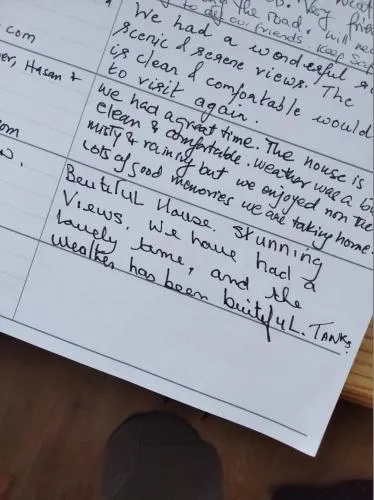 the road. will
to all our friends. Keep Safe
We had a wonderful
scenic & serene views. The
is clean & comfortable would
to visit again.
com
er, Hasan &
We had a great time. The house is
clean & comfortable. Weather was a
misty & raining but we enjoyed non the
Lots of good memories we are taking home.
com
Beutiful House. Stunning
Views. We have had a
lovely tame, and the
weather has been buitefuL. TANKS